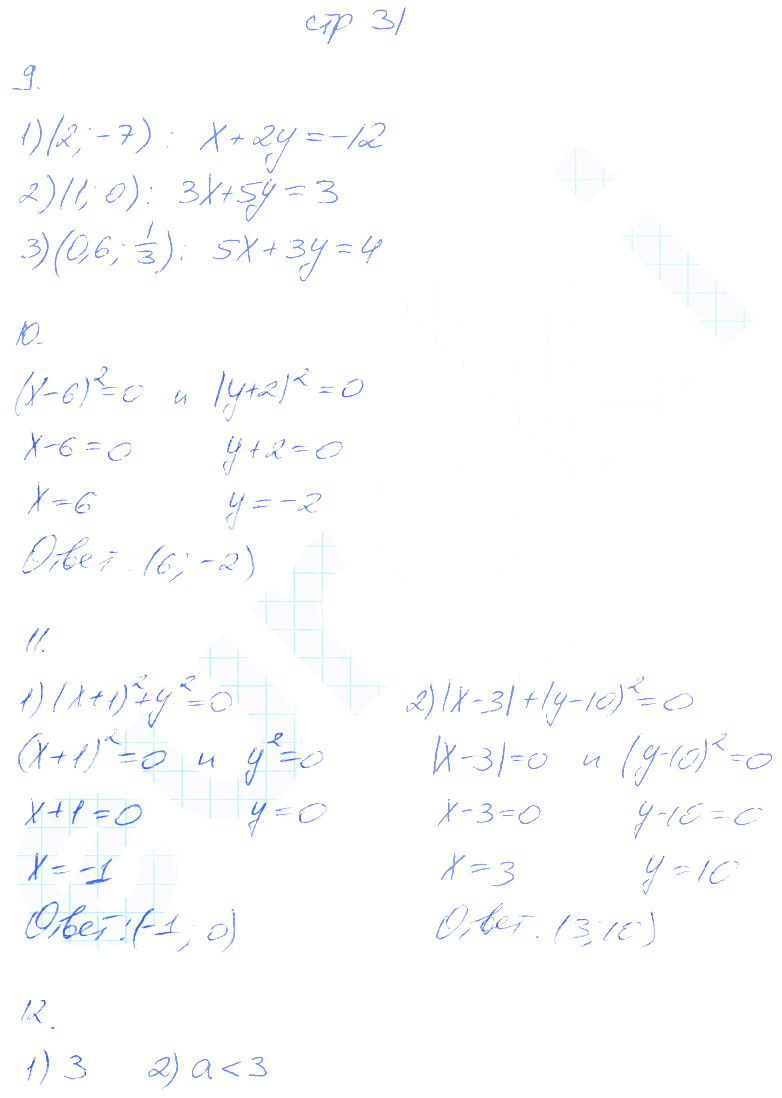 стр 31
9.
1) (2; -7): x+2y=-12
2) (1; 0): 3x+5y=3
3) (0,6; 1/3): 5x+3y=4
10.
(x-6)²=0 и (y+2)²=0
x-6=0 y+2=0
x=6 y=-2
Ответ: (6; -2)
11.
1) (x+1)²+y²=0
(x+1)²=0 и y²=0
x+1=0 y=0
x=-1
Ответ: (-1; 0)
2) |x-3|+(y-10)²=0
|x-3|=0 и (y-10)²=0
x-3=0 y-10=0
x=3 y=10
Ответ. (3; 10)
12.
1) 3 2) a<3